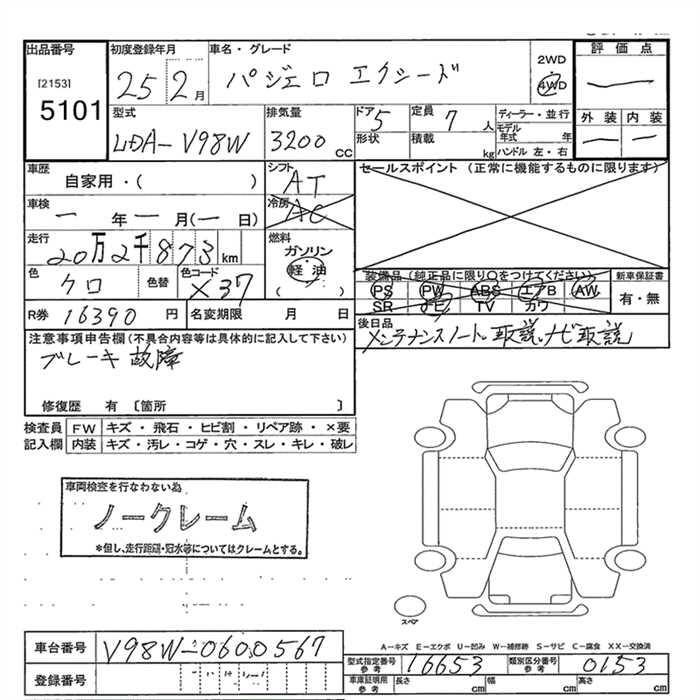 出品番号 初度登録年月 車名・グレード 評価点
[2153] 5101 25 2月 パジェロ エクシード 2WD 4WD
型式 LDA-V98W 排気量 3200 CC ドア 5 形状 定員 7人 積載 kg ディーラー・並行 モデル年式 年 ハンドル 左・右 外装 内装
車歴 自家用・( ) シフト AT セールスポイント (正常に機能するものに限ります)
車検 ー年ー月(ー日) 冷房 AC
走行 20万2千873km 燃料 ガソリン 軽油 ( )
色 クロ 色替 色コード X37 装備品(純正品に限り○をつけてください) 新車保証書
PS PW ABS エアB AW 有・無
SR ナビ TV カワ
R券 16390円 名変期限 月 日 後日品 メンテナンスノート、取説、ナビ取説
注意事項申告欄(不具合内容等は具体的に記入して下さい)
ブレーキ故障
修復歴 有 〔箇所 〕
検査員 FW キズ・飛石・ヒビ割・リペア跡・×要
記入欄 内装 キズ・汚レ・コゲ・穴・スレ・キレ・破レ
車両検査を行なわない為
ノークレーム
*但し、走行距離・冠水等についてはクレームとする。
スペア
A-キズ E-エクボ U-凹み W-補修跡 S-サビ C-腐食 XX-交換済
車台番号 V98W-0600567 型式指定番号 参考 16653 類別区分番号 参考 0153
登録番号 車庫証明用 参考 長さ cm 幅 cm 高さ cm